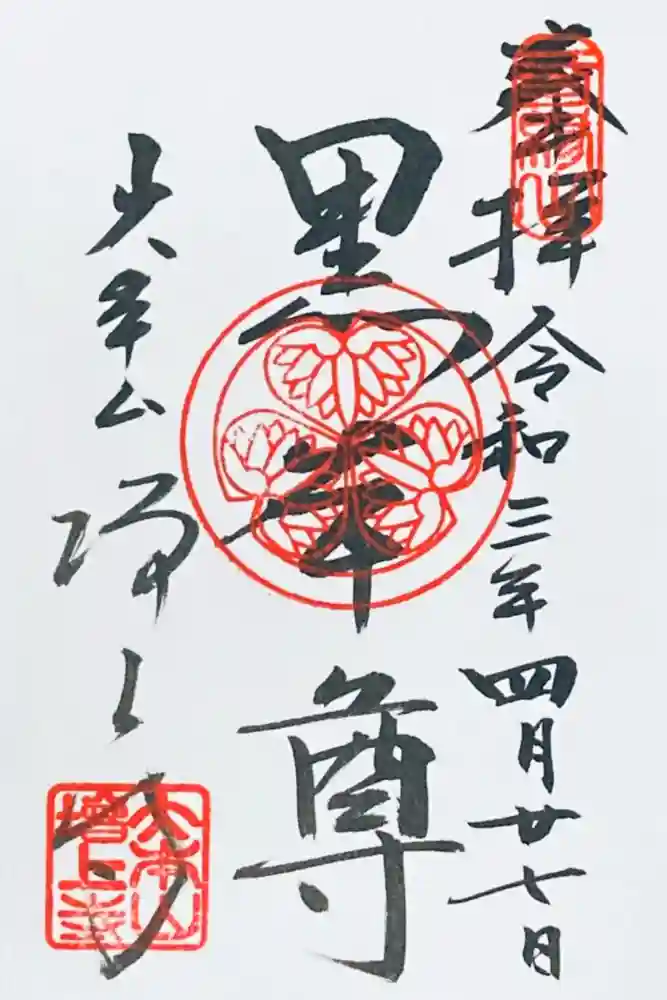 奉拝 令和三年四月廿七日
三縁山
黒本尊
大本山 増上寺
大本山
增上寺